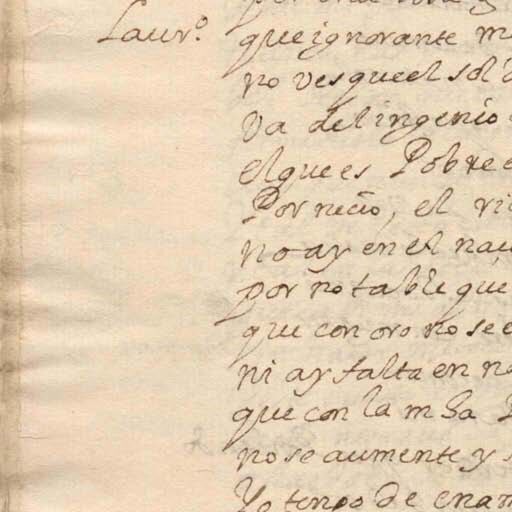 Laur.º que ignorante
no ves que el sol
va del ingenio
el que es Pobre
Por neçio, el
no ay en el
por notable que
que con oro no se
ni ay falta en
que con la mSa
no se aumente y
Yo tengo de